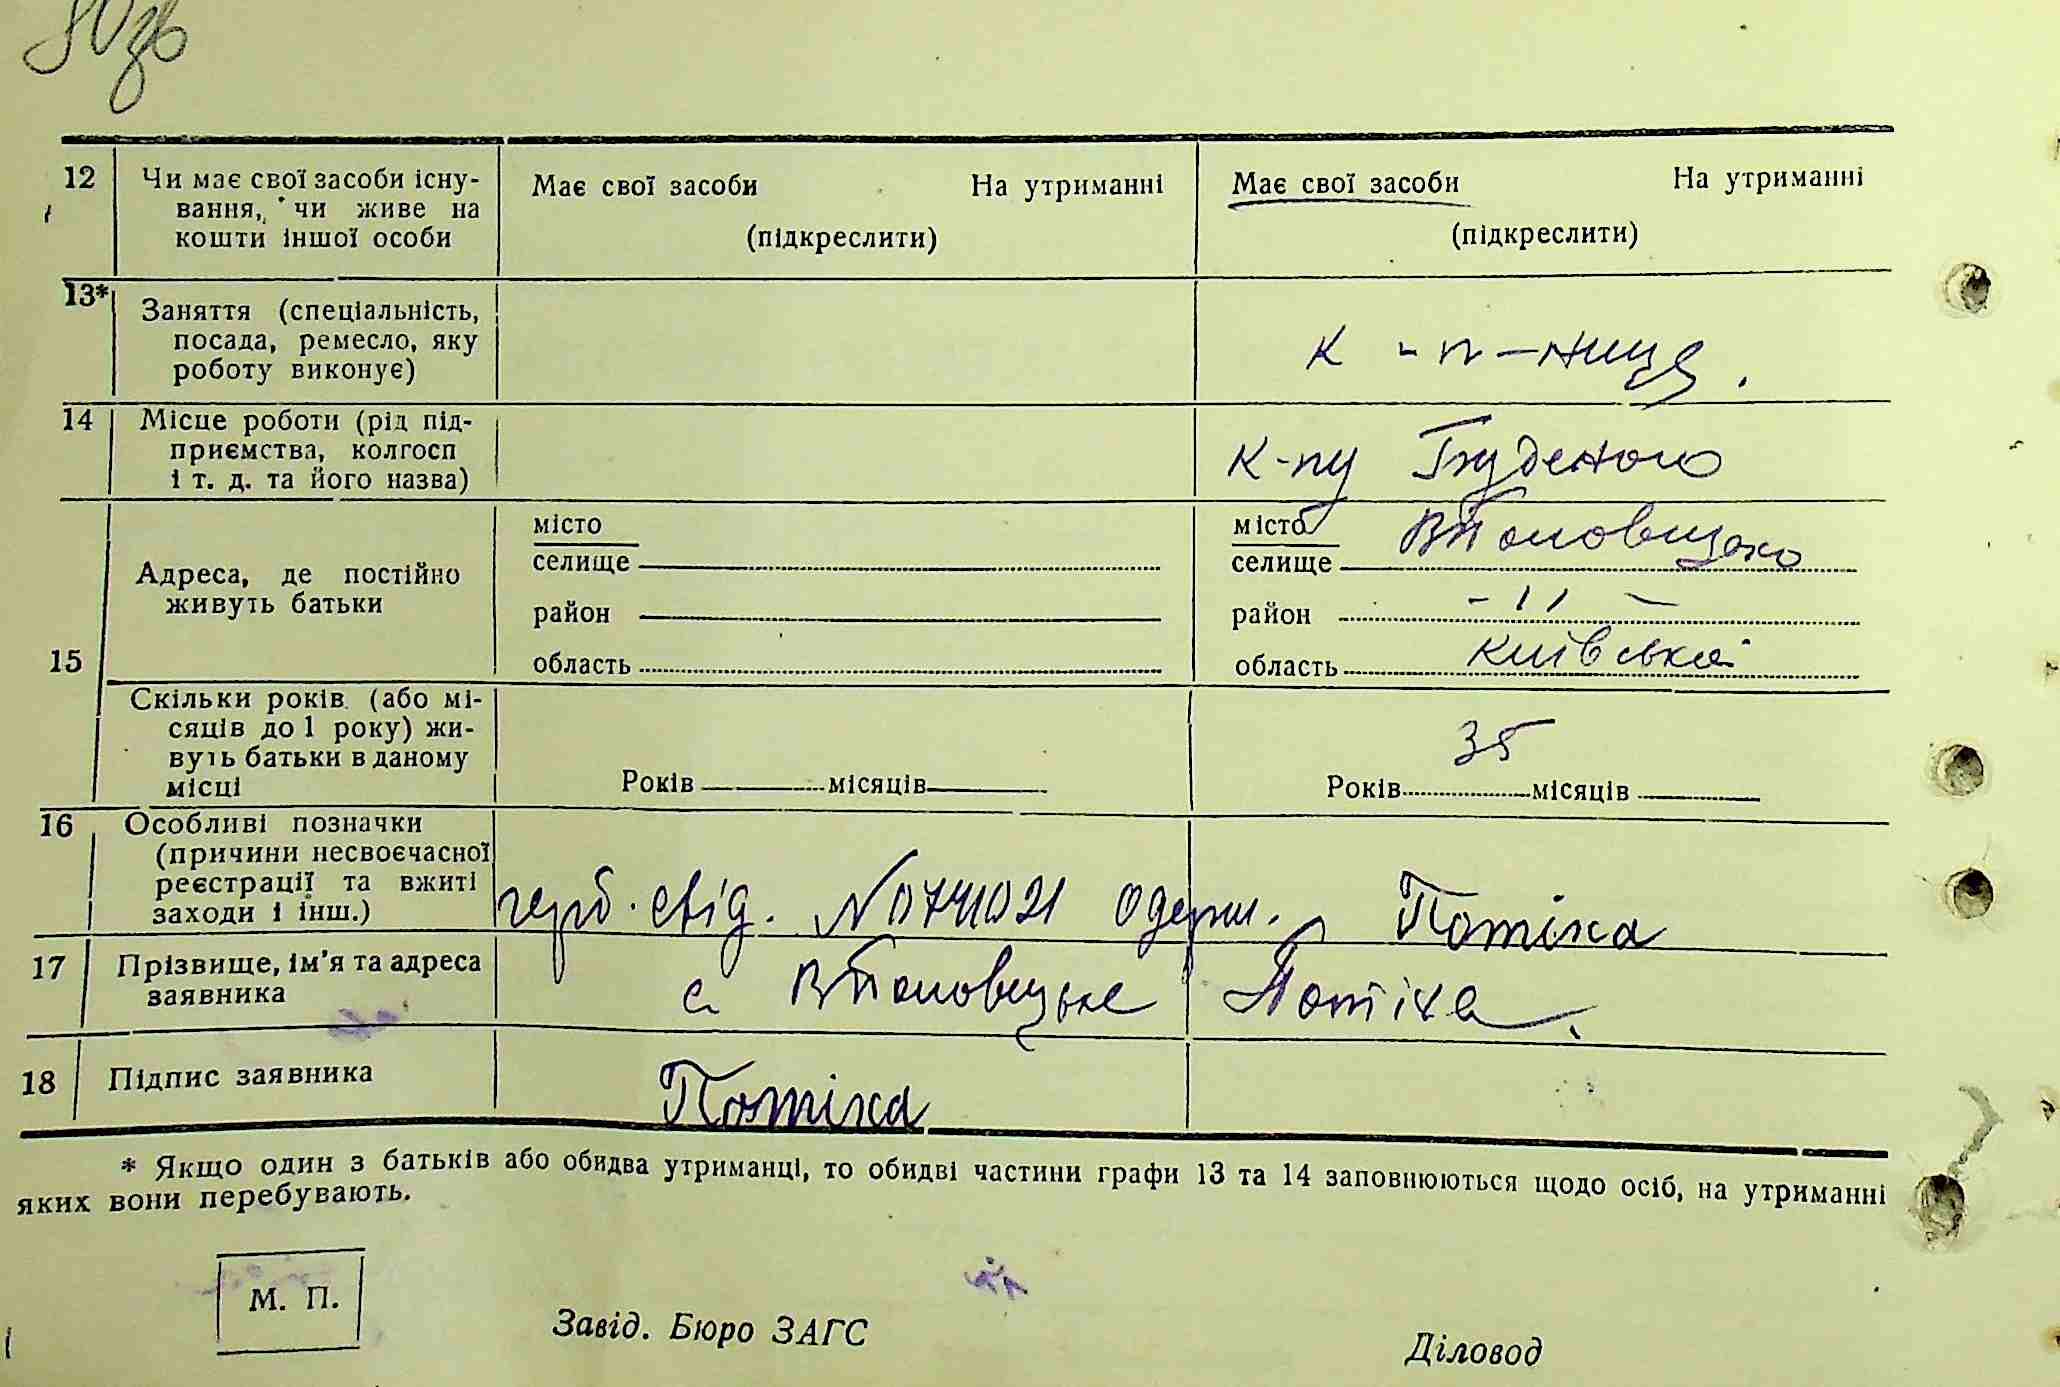 12 Чи має свої засоби існу-
вання, чи живе на
кошти іншої особи
Має свої засоби На утриманні
(підкреслити)
Має свої засоби На утриманні
(підкреслити)
13* Заняття (спеціальність,
посада, ремесло, яку
роботу виконує)
к - п - ниця.
14 Місце роботи (рід під-
приємства, колгосп
і т. д. та його назва)
к-пу Будьоного
15
Адреса, де постійно
живуть батьки
місто
селище
район
область
місто
селище
район - 11 -
область Київська
Скільки років (або мі-
сяців до 1 року) жи-
вуть батьки в даному
місці
Років місяців
35
Років місяців
16 Особливі позначки
(причини несвоєчасної
реєстрації та вжиті
заходи і інш.)
герб. свід. № 0741021 одерж. Потіха
17 Прізвище, ім'я та адреса
заявника
с. Потіха.
18 Підпис заявника
Потіха
* Якщо один з батьків або обидва утриманці, то обидві частини графи 13 та 14 заповнюються щодо осіб, на утриманні
яких вони перебувають.
М. П.
Завід. Бюро ЗАГС
Діловод